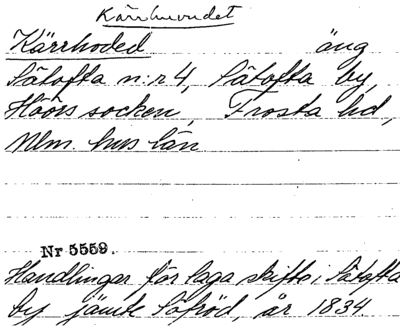 Kärrhuvudet
Kärrhoded äng
Sätofta n:r 4, Sätofta by,
Höörs socken, Frosta hd,
Mlm. hus län
Nr 5559.
Handlingar för laga skifte i Sätofta
by jämte Säfröd, år 1834